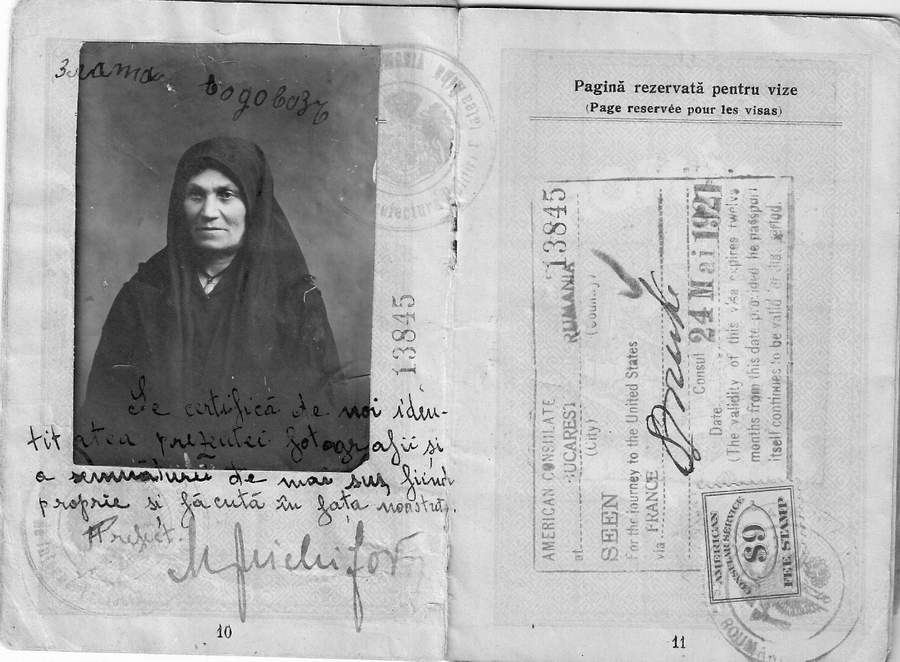 Злата Водовозъ
13845
Se certifică de noi iden-
titatea prezentei fotografii si
a semnăturii de mai sus, fiind
proprie si făcută în fața noastră.
Prefect.
10
Pagină rezervată pentru vize
(Page reservée pour les visas)
AMERICAN CONSULATE
at BUCAREST RUMANIA 13845
(City) (Country)
SEEN
For the journey to the United States
via FRANCE
Consul
Date 24 Mai 1921
(The validity of this visa expires twelve
months from this date provided the passport
itself continues to be valid for that period.
AMERICAN
CONSULAR SERVICE
$9
FEE STAMP
11